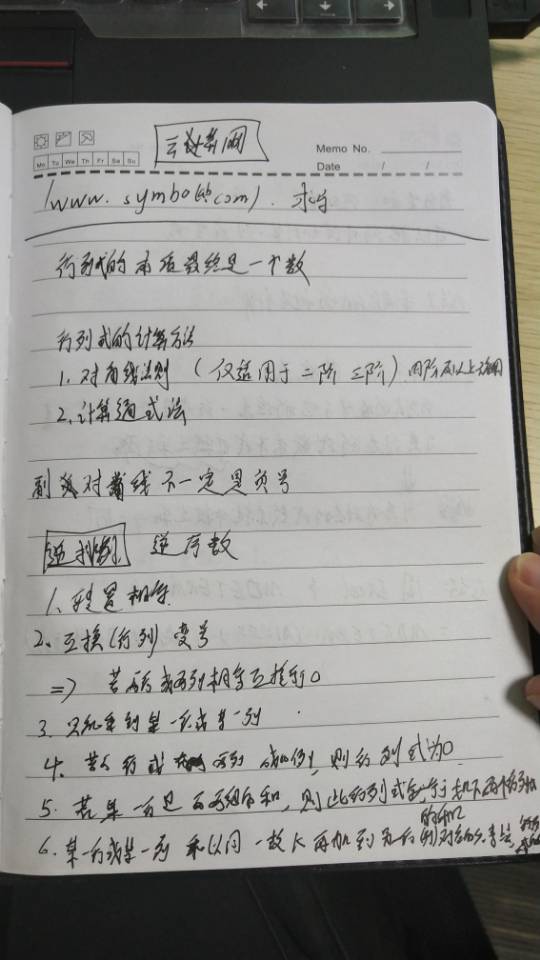 云计算网
Memo No.
Mo Tu We Th Fr Sa Su
Date / /
(www.symbolab.com). 求导
行列式的本质最终是一个数
行列式的计算方法
1. 对角线法则 (仅适用于二阶 三阶) 四阶及以上
2. 计算通式法
副对角线不一定是负号
逆排列 逆序数
1. 转置相等
2. 互换(行列) 变号
=> 若两行或两列相等互换等于0
3. 只能乘到某一行或某一列
4. 若行或两列成比例, 则行列式为0
5. 若某一行是两组的和, 则此行列式等于如下两个行列式
的和
6. 某一行或某一列 乘以同一数 K 再加到另一行(列)对应的元素上